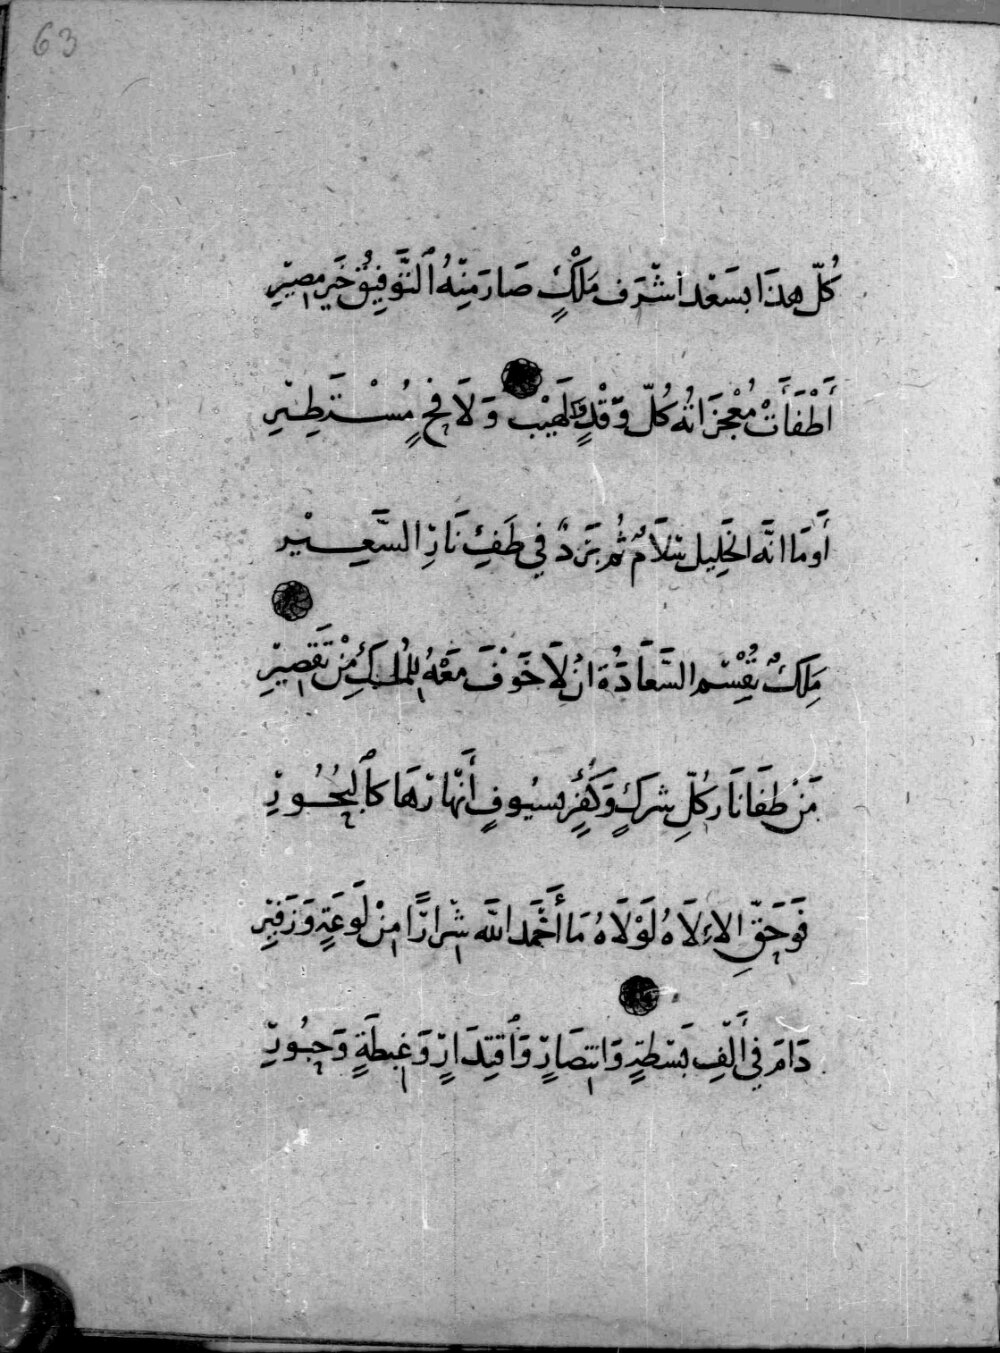 63
كُلّ هذَا بسَعْد اشْرَف مَلْكٍ صَارَ مِنْهُ ٱلتَّوفِيقُ خَير مصِيْرِ
أَطْفَأَتْ مُعْجزَاتُه كُلّ وَقْدٍ لَهِيْب وَلَا فحٍ مُسْتَطِيْرِ
أَو مَا انَّه الخَلِيل سَلَامٌ ثُم بَرَدٌ في طَفئِ نَارِ السَّعَيْر
مَلَكٌ تقْسم السَّعَادَةُ ان لَا خَوْفَ مَعْهُ للمُلكِ مِنْ تَقصِيْرِ
مَنْ طفَا نَار كُلِّ شركٍ وَكُفْرٍ بسيُوفٍ أَنْهارهَا كاَلبُحُورِ
فَوَحَقِّ الاءِلَاهُ لَوْلَاهُ مَا أَخْمَد اللَّه شرَارًا مِنْ لَوعَةٍ وَزَفيْرِ
دَامَ في أَلْفِ بَسْطَةٍ وَانتصَارٍ وَٱقتِدَارٍ وَغِبطَةٍ وَحبُورِ